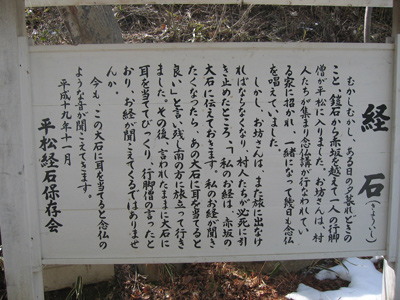 経石
(きょういし)
むかしむかし、ある日の夕暮れどきの
こと、鎧石から赤坂を越えて一人の行脚
僧が平松に入りました。お坊さんは、村
人たちが集まり念仏講が行なわれてい
る家に招かれ、一緒になって幾日も念仏
を唱えていました。
しかし、お坊さんは、また旅に出なけ
ればならなくなり、村人たちが必死に引
き止めたところ、「私のお経は、赤坂の
大石に伝えておきます。私のお経が聞き
たくなったら、あの大石に耳を当てると
良い」と言い残し南の方に旅立って行き
ました。その後、言われたままに大石に
耳を当ててびっくり、行脚僧の言ったと
おり、お経が聞こえてくるではありませ
んか。
今も、この大石に耳を当てると念仏の
ような音が聞こえてきます。
平成十九年十一月
平松経石保存会